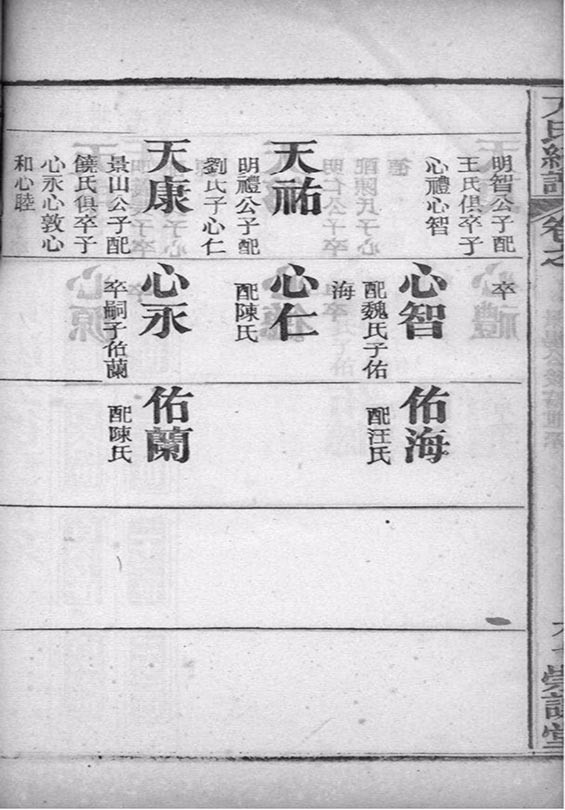 明智公子配
王氏俱卒子
心禮心智
天祐
明禮公子配
劉氏子心仁
天康
景山公子配
饒氏俱卒子
心永心敦心
和心睦
卒
心智
配魏氏子佑
海
心仁
配陳氏
心永
卒嗣子佑蘭
佑海
配汪氏
佑蘭
配陳氏